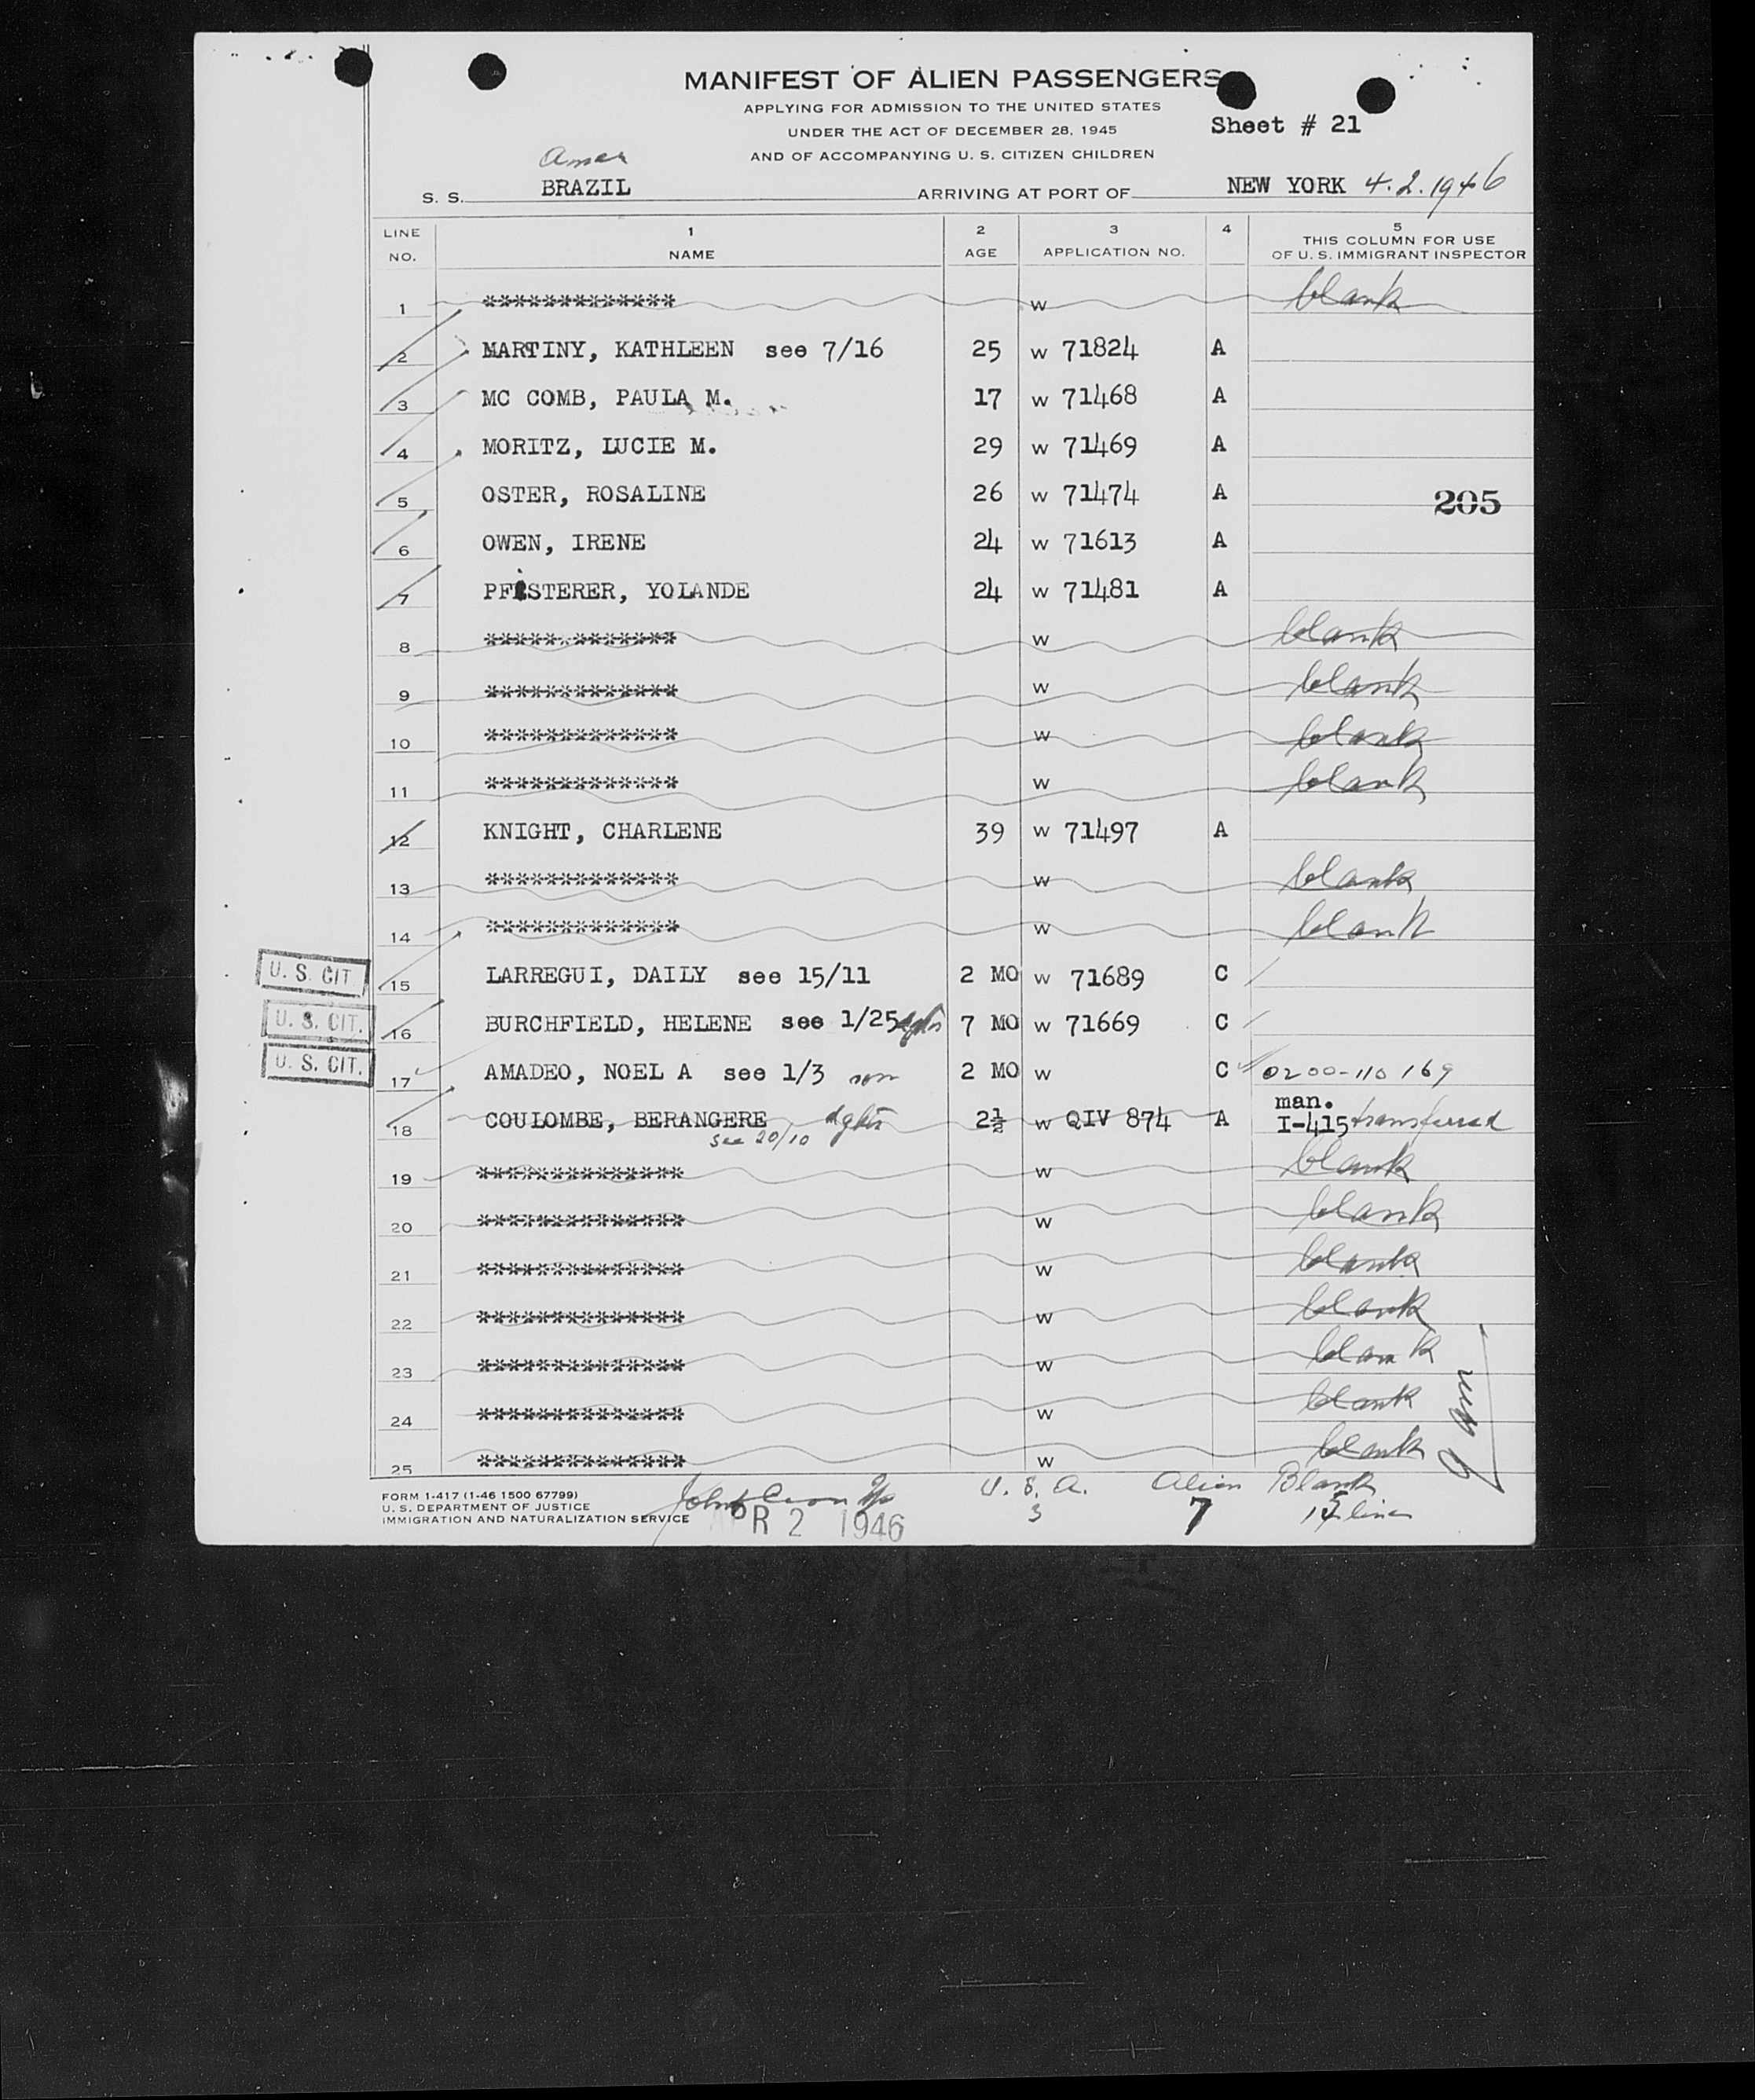 MANIFEST OF ALIEN PASSENGERS
APPLYING FOR ADMISSION TO THE UNITED STATES
UNDER THE ACT OF DECEMBER 28, 1945
AND OF ACCOMPANYING U. S. CITIZEN CHILDREN
Sheet # 21
Amer
S. S. BRAZIL ARRIVING AT PORT OF NEW YORK 4.2.1946
LINE NO. 1 NAME 2 AGE 3 APPLICATION NO. 4 5 THIS COLUMN FOR USE OF U. S. IMMIGRANT INSPECTOR
1 ************* W blank
2 MARTINY, KATHLEEN see 7/16 25 W 71824 A
3 MC COMB, PAULA M. 17 W 71468 A
4 MORITZ, LUCIE M. 29 W 71469 A
5 OSTER, ROSALINE 26 W 71474 A 205
6 OWEN, IRENE 24 W 71613 A
7 PFISTERER, YOLANDE 24 W 71481 A
8 ************* W blank
9 ************* W blank
10 ************* W blank
11 ************* W blank
12 KNIGHT, CHARLENE 39 W 71497 A
13 ************* W blank
14 ************* W blank
U. S. CIT. 15 LARREGUI, DAILY see 15/11 2 MO W 71689 C
U. S. CIT. 16 BURCHFIELD, HELENE see 1/25 dghtr 7 MO W 71669 C
U. S. CIT. 17 AMADEO, NOEL A see 1/3 son 2 MO W C 0200-110 169
18 COULOMBE, BERANGERE dghtr see 20/10 2½ W QIV 874 A man. I-415 transferred
19 ************** W blank
20 ************** W blank
21 ************** W blank
22 ************** W blank
23 ************** W blank
24 ************** W blank
25 ************** W blank
FORM I-417 (1-46 1500 67799)
U. S. DEPARTMENT OF JUSTICE
IMMIGRATION AND NATURALIZATION SERVICE
APR 2 1946
U. S. A. Alien Blank
3 7 15 lines